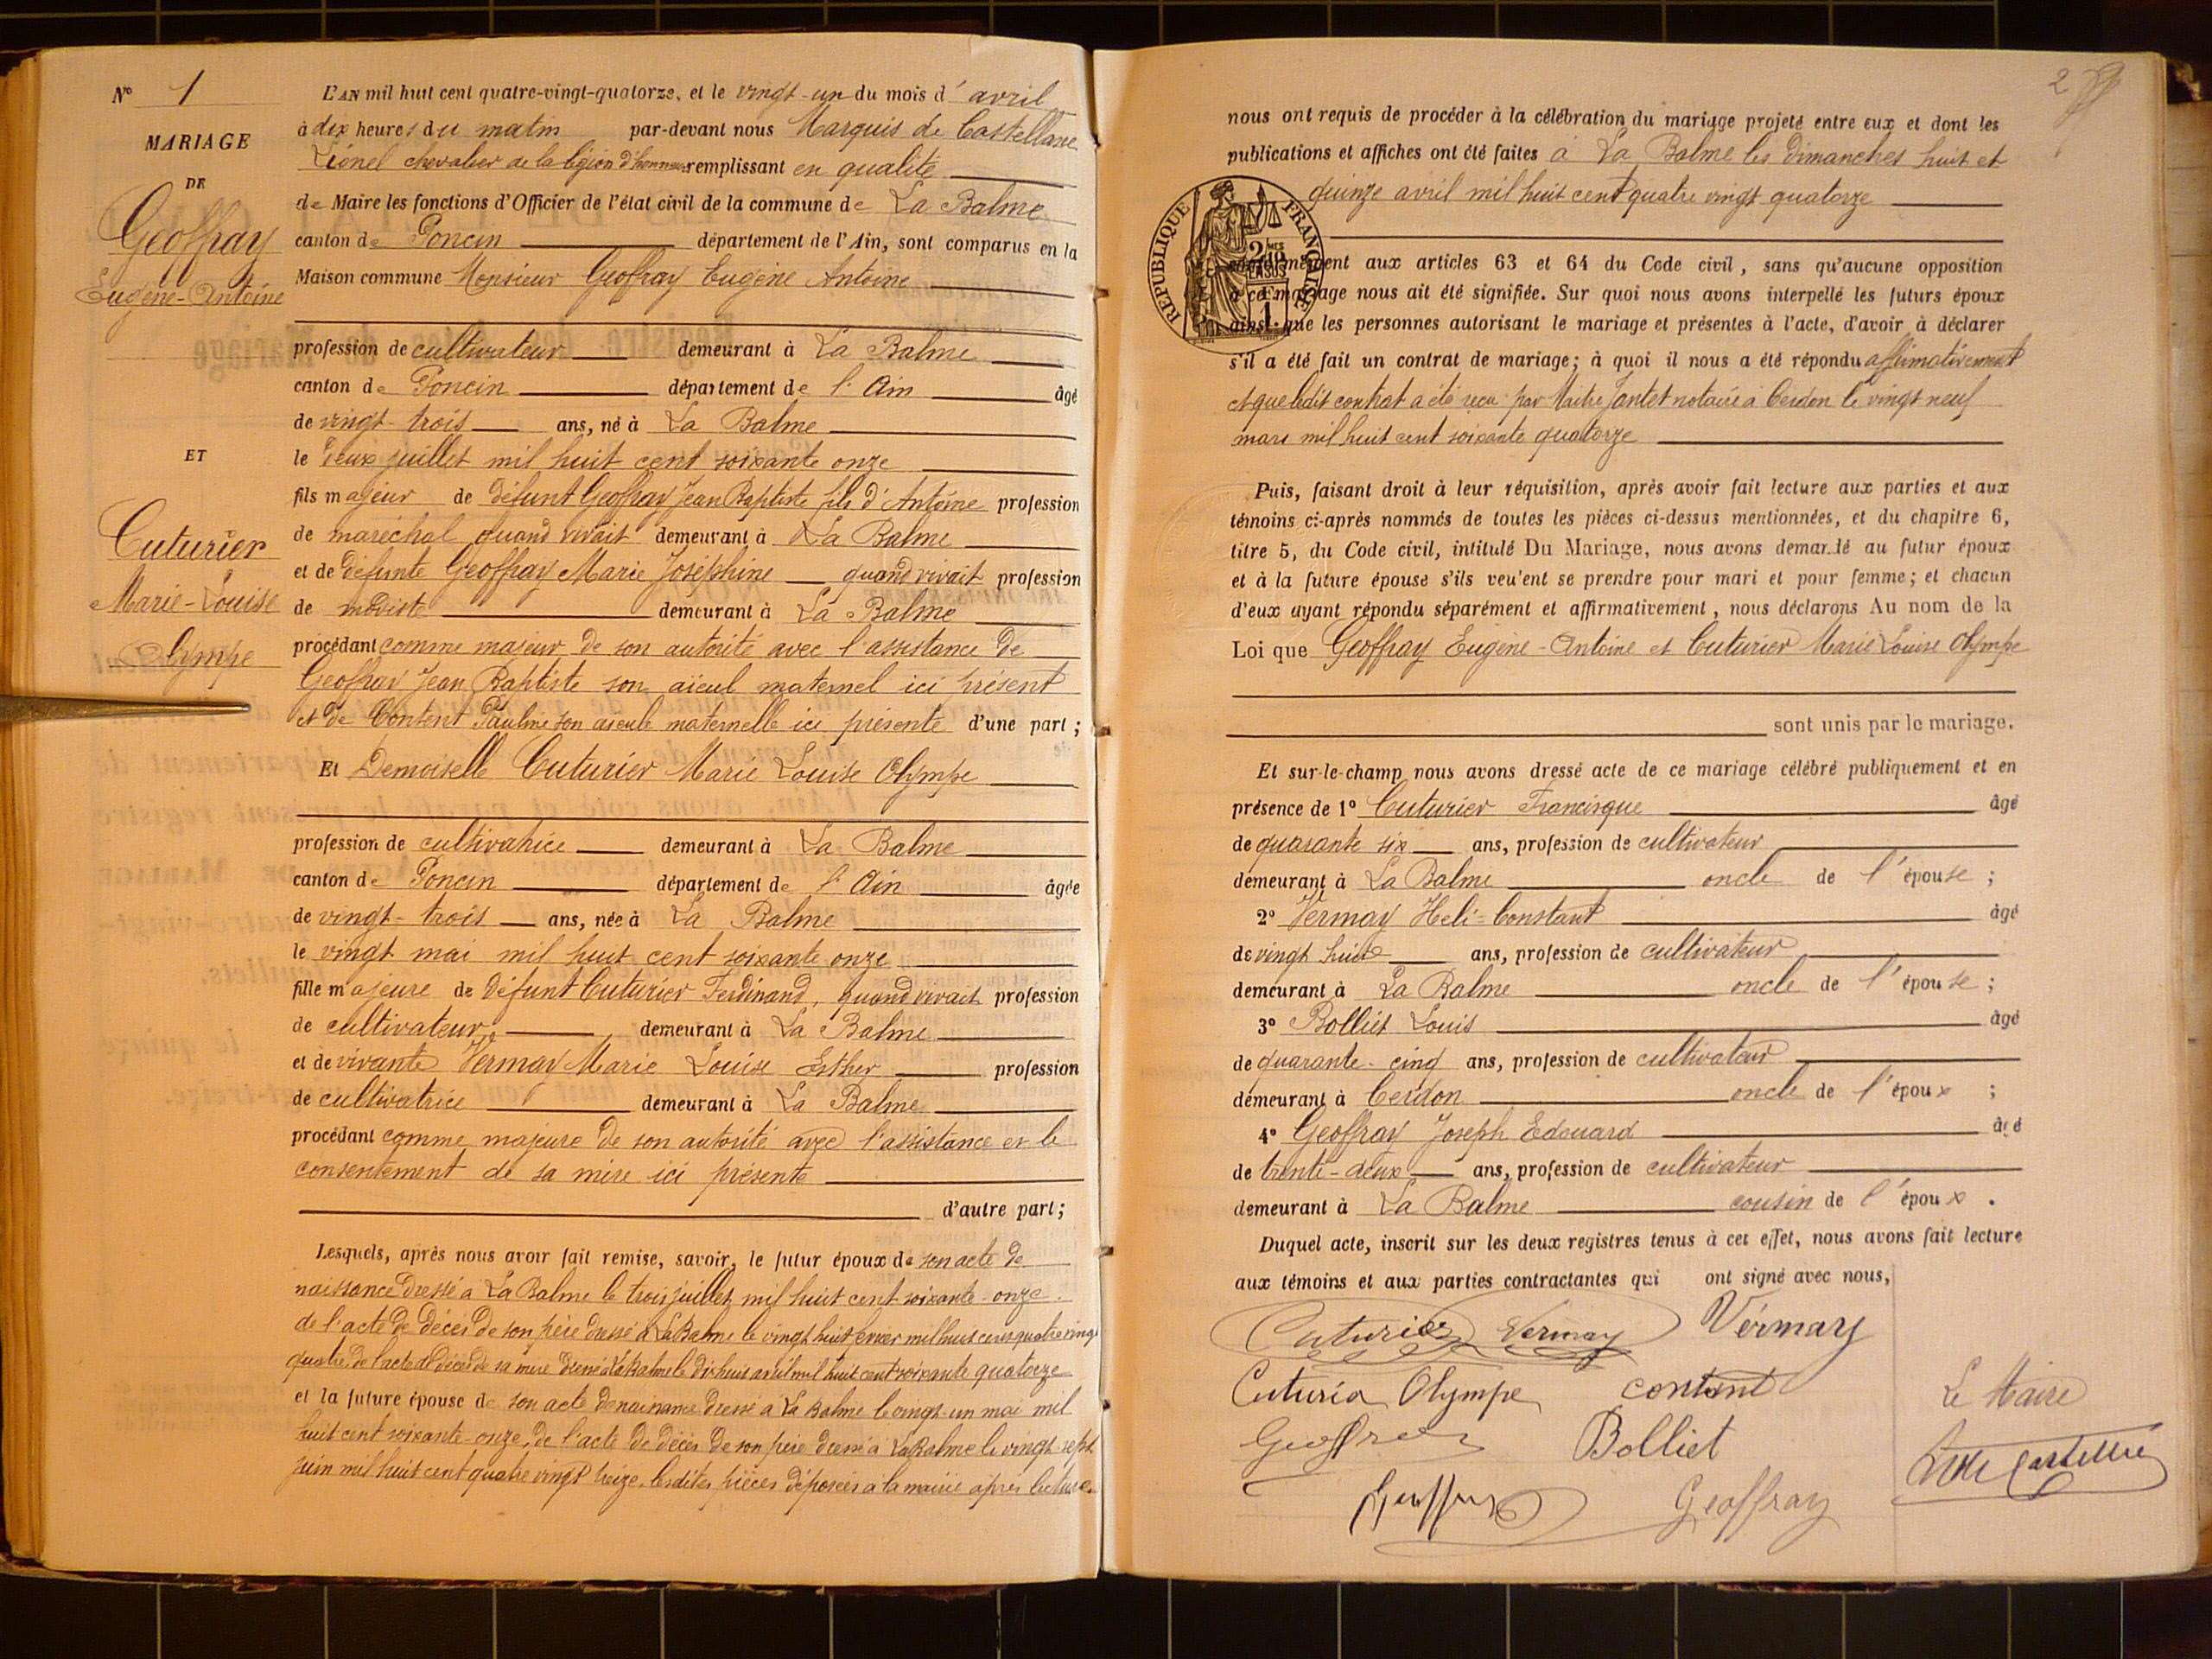 N° 1
MARIAGE
DE
Geoffray
Eugène-Antoine
ET
Cuturier
Marie-Louise
Olympe
L'AN mil huit cent quatre-vingt-quatorze, et le vingt-un du mois d'avril
à dix heures du matin par-devant nous Marquis de Castellane
Lionel chevalier de la légion d'honneur remplissant en qualité
de Maire les fonctions d'Officier de l'état civil de la commune de La Balme
canton de Poncin département de l'Ain, sont comparus en la
Maison commune Monsieur Geoffray Eugène Antoine
profession de cultivateur demeurant à La Balme
canton de Poncin département de l'Ain âgé
de vingt-trois ans, né à La Balme
le deux juillet mil huit cent soixante onze
fils majeur de défunt Geoffray Jean Baptiste fils d'Antoine profession
de maréchal quand vivait demeurant à La Balme
et de défunte Geoffray Marie Joséphine quand vivait profession
de modiste demeurant à La Balme
procédant comme majeur de son autorité avec l'assistance de
Geoffray Jean Baptiste son aïeul maternel ici présent
et de Content Pauline son aïeule maternelle ici présente d'une part ;
Et Demoiselle Cuturier Marie Louise Olympe
profession de cultivatrice demeurant à La Balme
canton de Poncin département de l'Ain âgée
de vingt-trois ans, née à La Balme
le vingt mai mil huit cent soixante onze
fille majeure de défunt Cuturier Ferdinand, quand vivait profession
de cultivateur demeurant à La Balme
et de vivante Vermay Marie Louise Esther profession
de cultivatrice demeurant à La Balme
procédant comme majeure de son autorité avec l'assistance et le
consentement de sa mère ici présente
d'autre part ;
Lesquels, après nous avoir fait remise, savoir, le futur époux de son acte de
naissance dressé à La Balme le trois juillet mil huit cent soixante-onze.
de l'acte de décès de son père dressé à La Balme le vingt huit mil huit cent quatre vingt
quatre, de l'acte de décès de sa mère dressé à La Balme le dix huit avril mil huit cent soixante quatorze
et la future épouse de son acte de naissance dressé à La Balme le vingt-un mai mil
huit cent soixante-onze, de l'acte de décès de son père dressé à La Balme le vingt-sept
juin mil huit cent quatre vingt treize, lesdites pièces déposées à la mairie après lecture.
2
nous ont requis de procéder à la célébration du mariage projeté entre eux et dont les
publications et affiches ont été faites à La Balme les dimanches huit et
quinze avril mil huit cent quatre vingt quatorze
RÉPUBLIQUE FRANÇAISE
conformément aux articles 63 et 64 du Code civil, sans qu'aucune opposition
à ce mariage nous ait été signifiée. Sur quoi nous avons interpellé les futurs époux
ainsi que les personnes autorisant le mariage et présentes à l'acte, d'avoir à déclarer
s'il a été fait un contrat de mariage ; à quoi il nous a été répondu affirmativement
et que ledit contrat a été reçu par Maître Jantet notaire à Cerdon le vingt neuf
mars mil huit cent soixante quatorze
Puis, faisant droit à leur réquisition, après avoir fait lecture aux parties et aux
témoins ci-après nommés de toutes les pièces ci-dessus mentionnées, et du chapitre 6,
titre 5, du Code civil, intitulé Du Mariage, nous avons demandé au futur époux
et à la future épouse s'ils veulent se prendre pour mari et pour femme ; et chacun
d'eux ayant répondu séparément et affirmativement, nous déclarons Au nom de la
Loi que Geoffray Eugène-Antoine et Cuturier Marie Louise Olympe
sont unis par le mariage.
Et sur-le-champ nous avons dressé acte de ce mariage célébré publiquement et en
présence de 1° Cuturier Francisque âgé
de quarante six ans, profession de cultivateur
demeurant à La Balme oncle de l'épouse ;
2° Vermay Heli-Constant âgé
de vingt huit ans, profession de cultivateur
demeurant à La Balme oncle de l'épouse ;
3° Bolliet Louis âgé
de quarante-cinq ans, profession de cultivateur
demeurant à Cerdon oncle de l'époux ;
4° Geoffray Joseph Edouard âgé
de trente-deux ans, profession de cultivateur
demeurant à La Balme cousin de l'époux .
Duquel acte, inscrit sur les deux registres tenus à cet effet, nous avons fait lecture
aux témoins et aux parties contractantes qui ont signé avec nous,
Cuturier Vermay Vérmay
Cuturier Olympe content
Le Maire
Geoffray Bolliet
Geoffray Geoffray